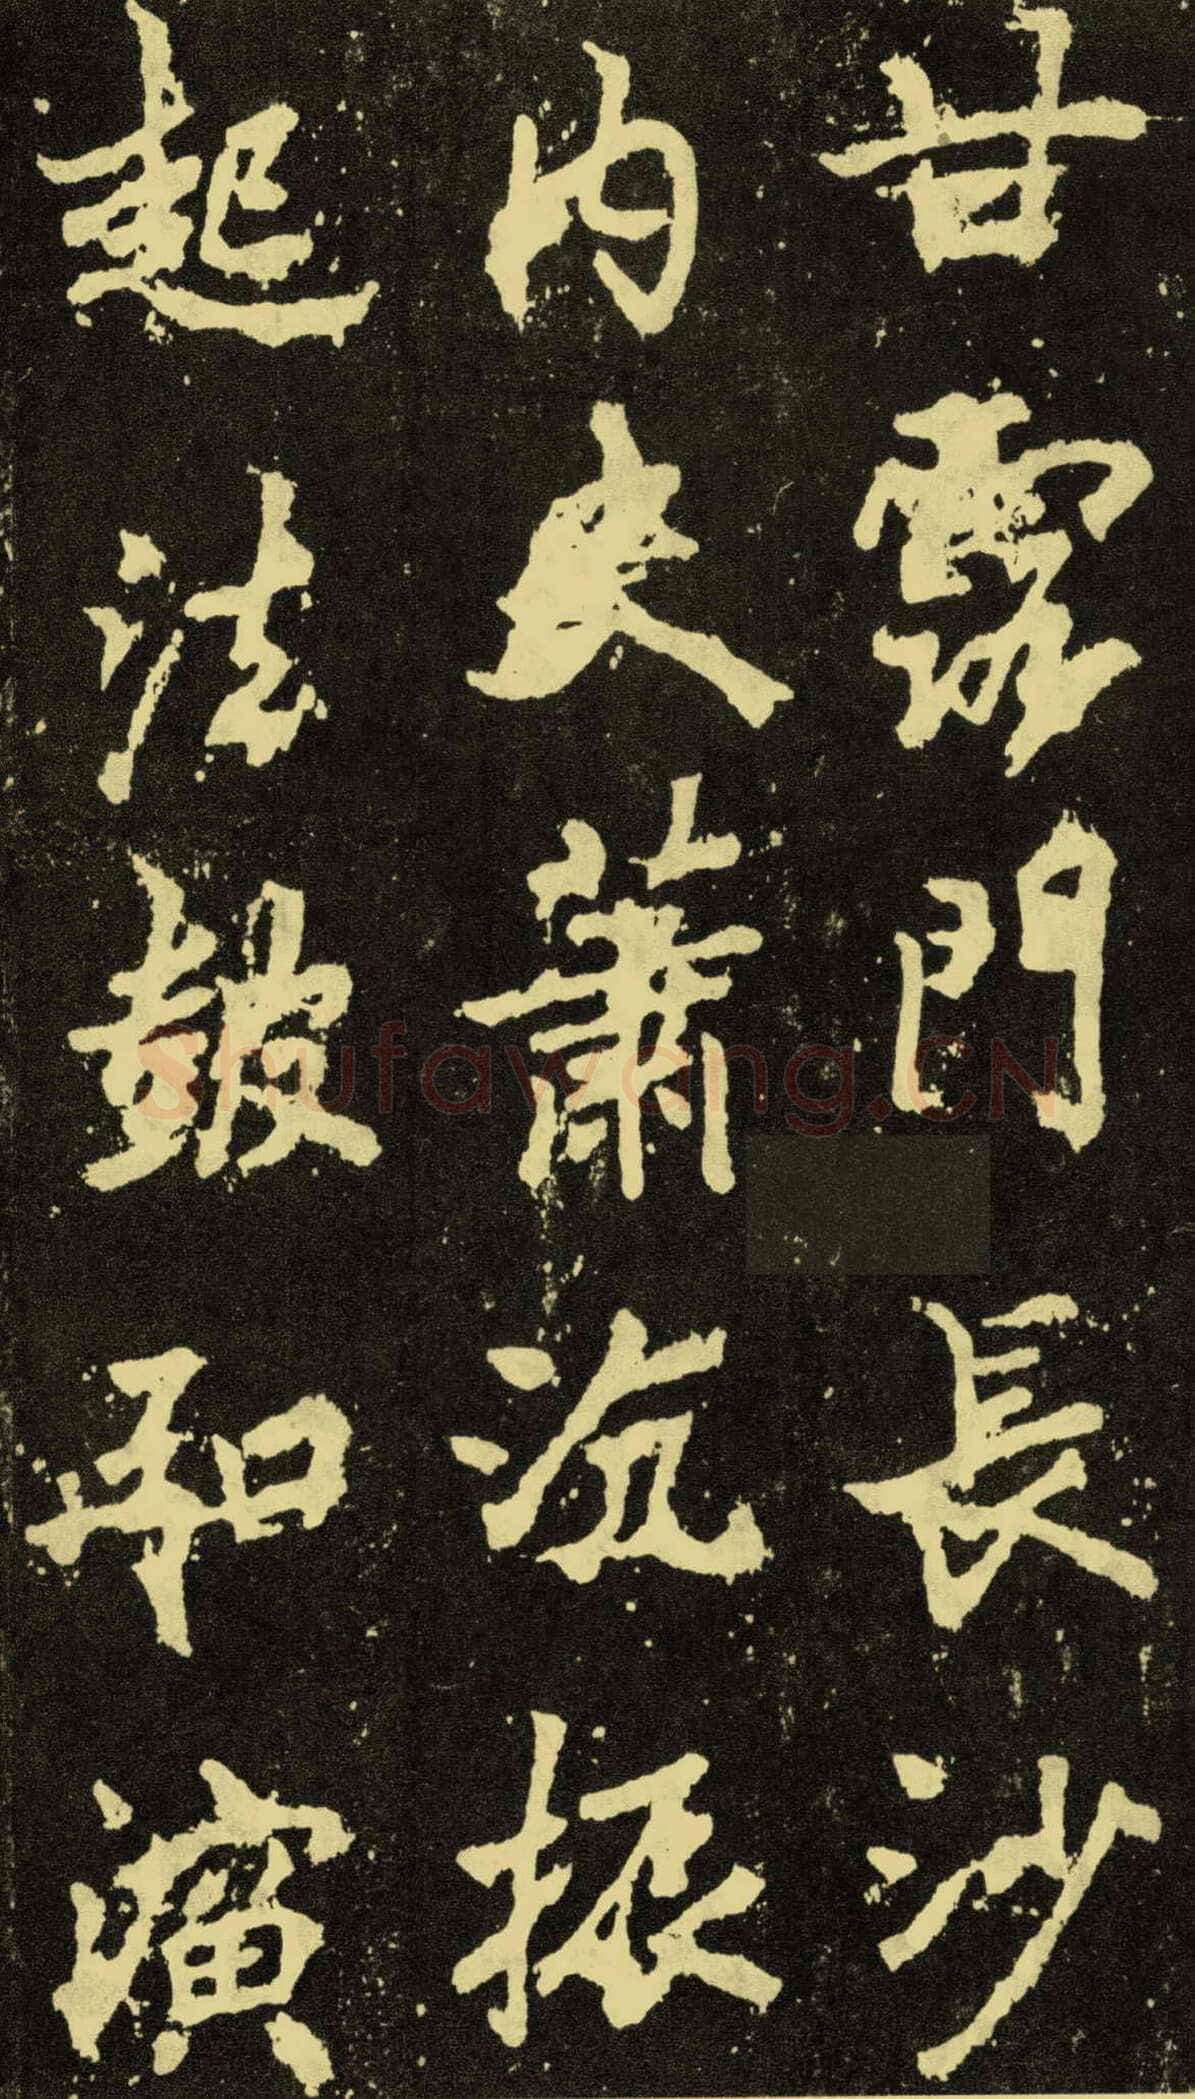 甘露門長沙
內史蕭沆振
起法鼓和演
Shufawang.CN